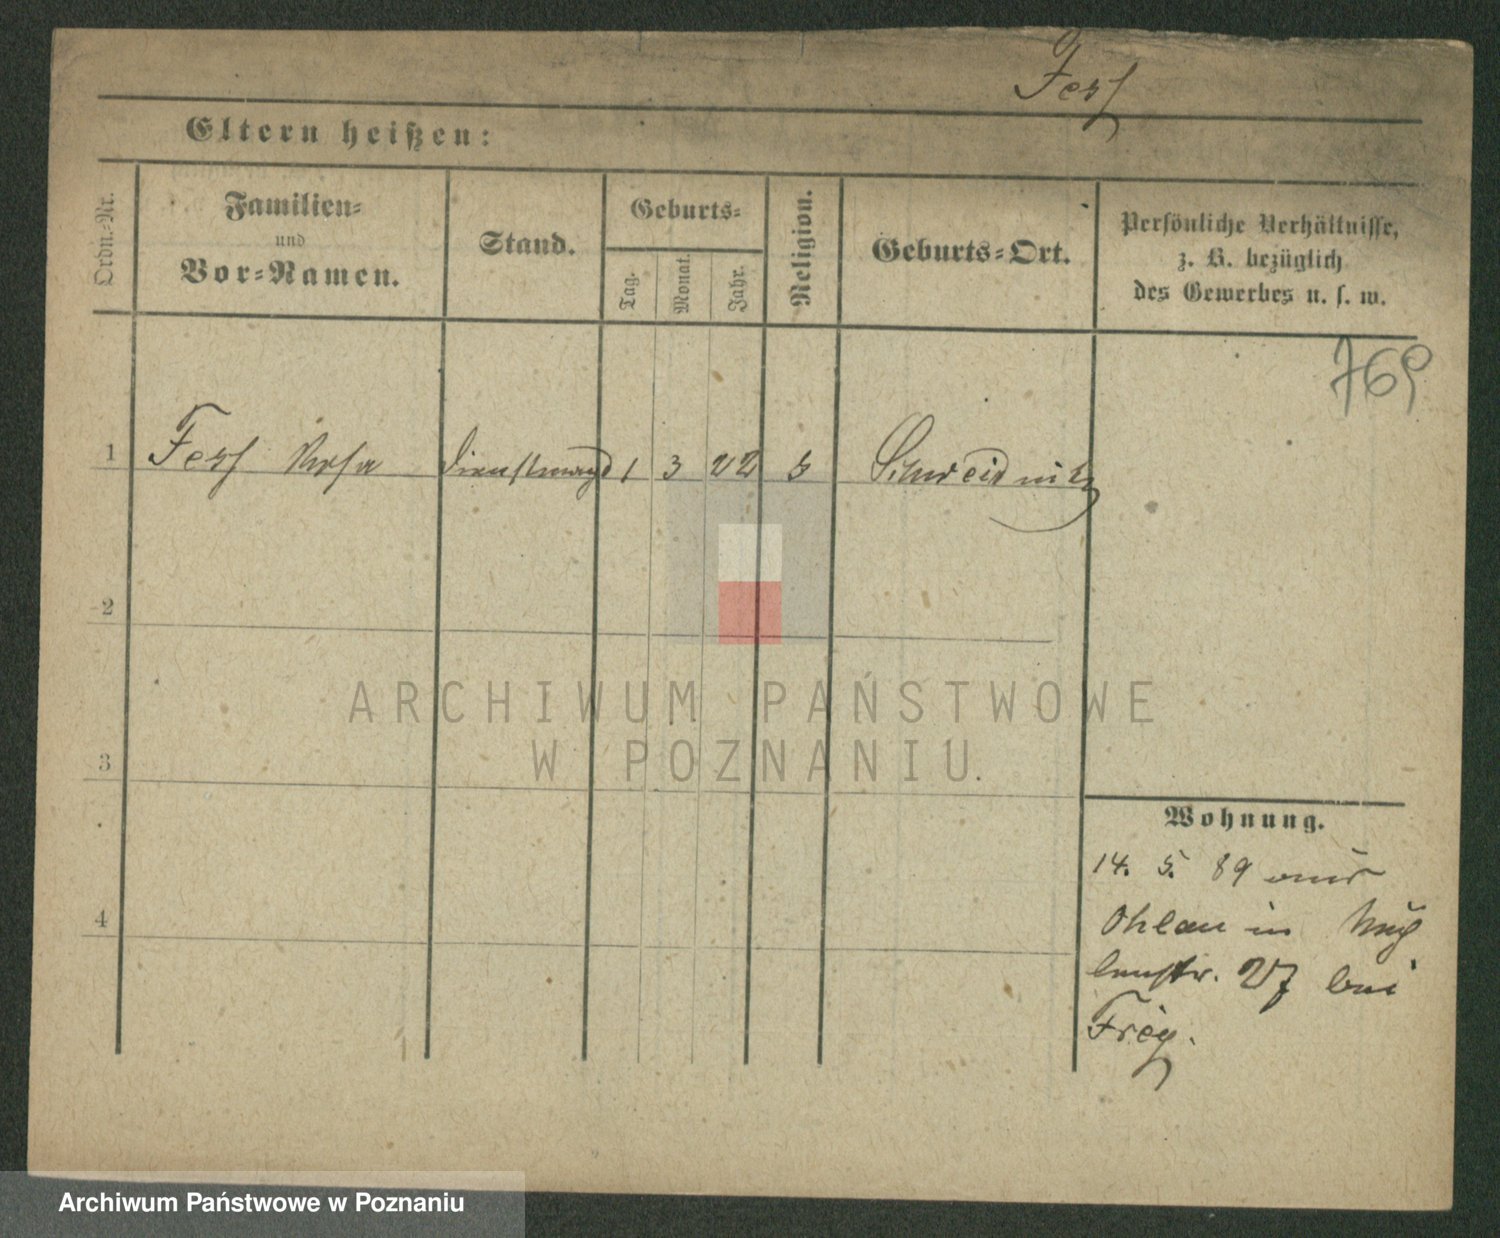 Feß
Eltern heißen:
Ordn.-Nr.
Familien-
und
Vor-Namen.
Stand.
Geburts-
Tag.
Monat.
Jahr.
Religion.
Geburts-Ort.
Persönliche Verhältnisse,
z. B. bezüglich
des Gewerbes u. s. w.
769
1 Feß Rosa Dienstmagd 1 3 22 Schweidnitz
2
3
4
Wohnung.
14. 5. 89 aus
Ohlau in
str. 27 bei
Frey.
ARCHIWUM PAŃSTWOWE
W POZNANIU.
Archiwum Państwowe w Poznaniu